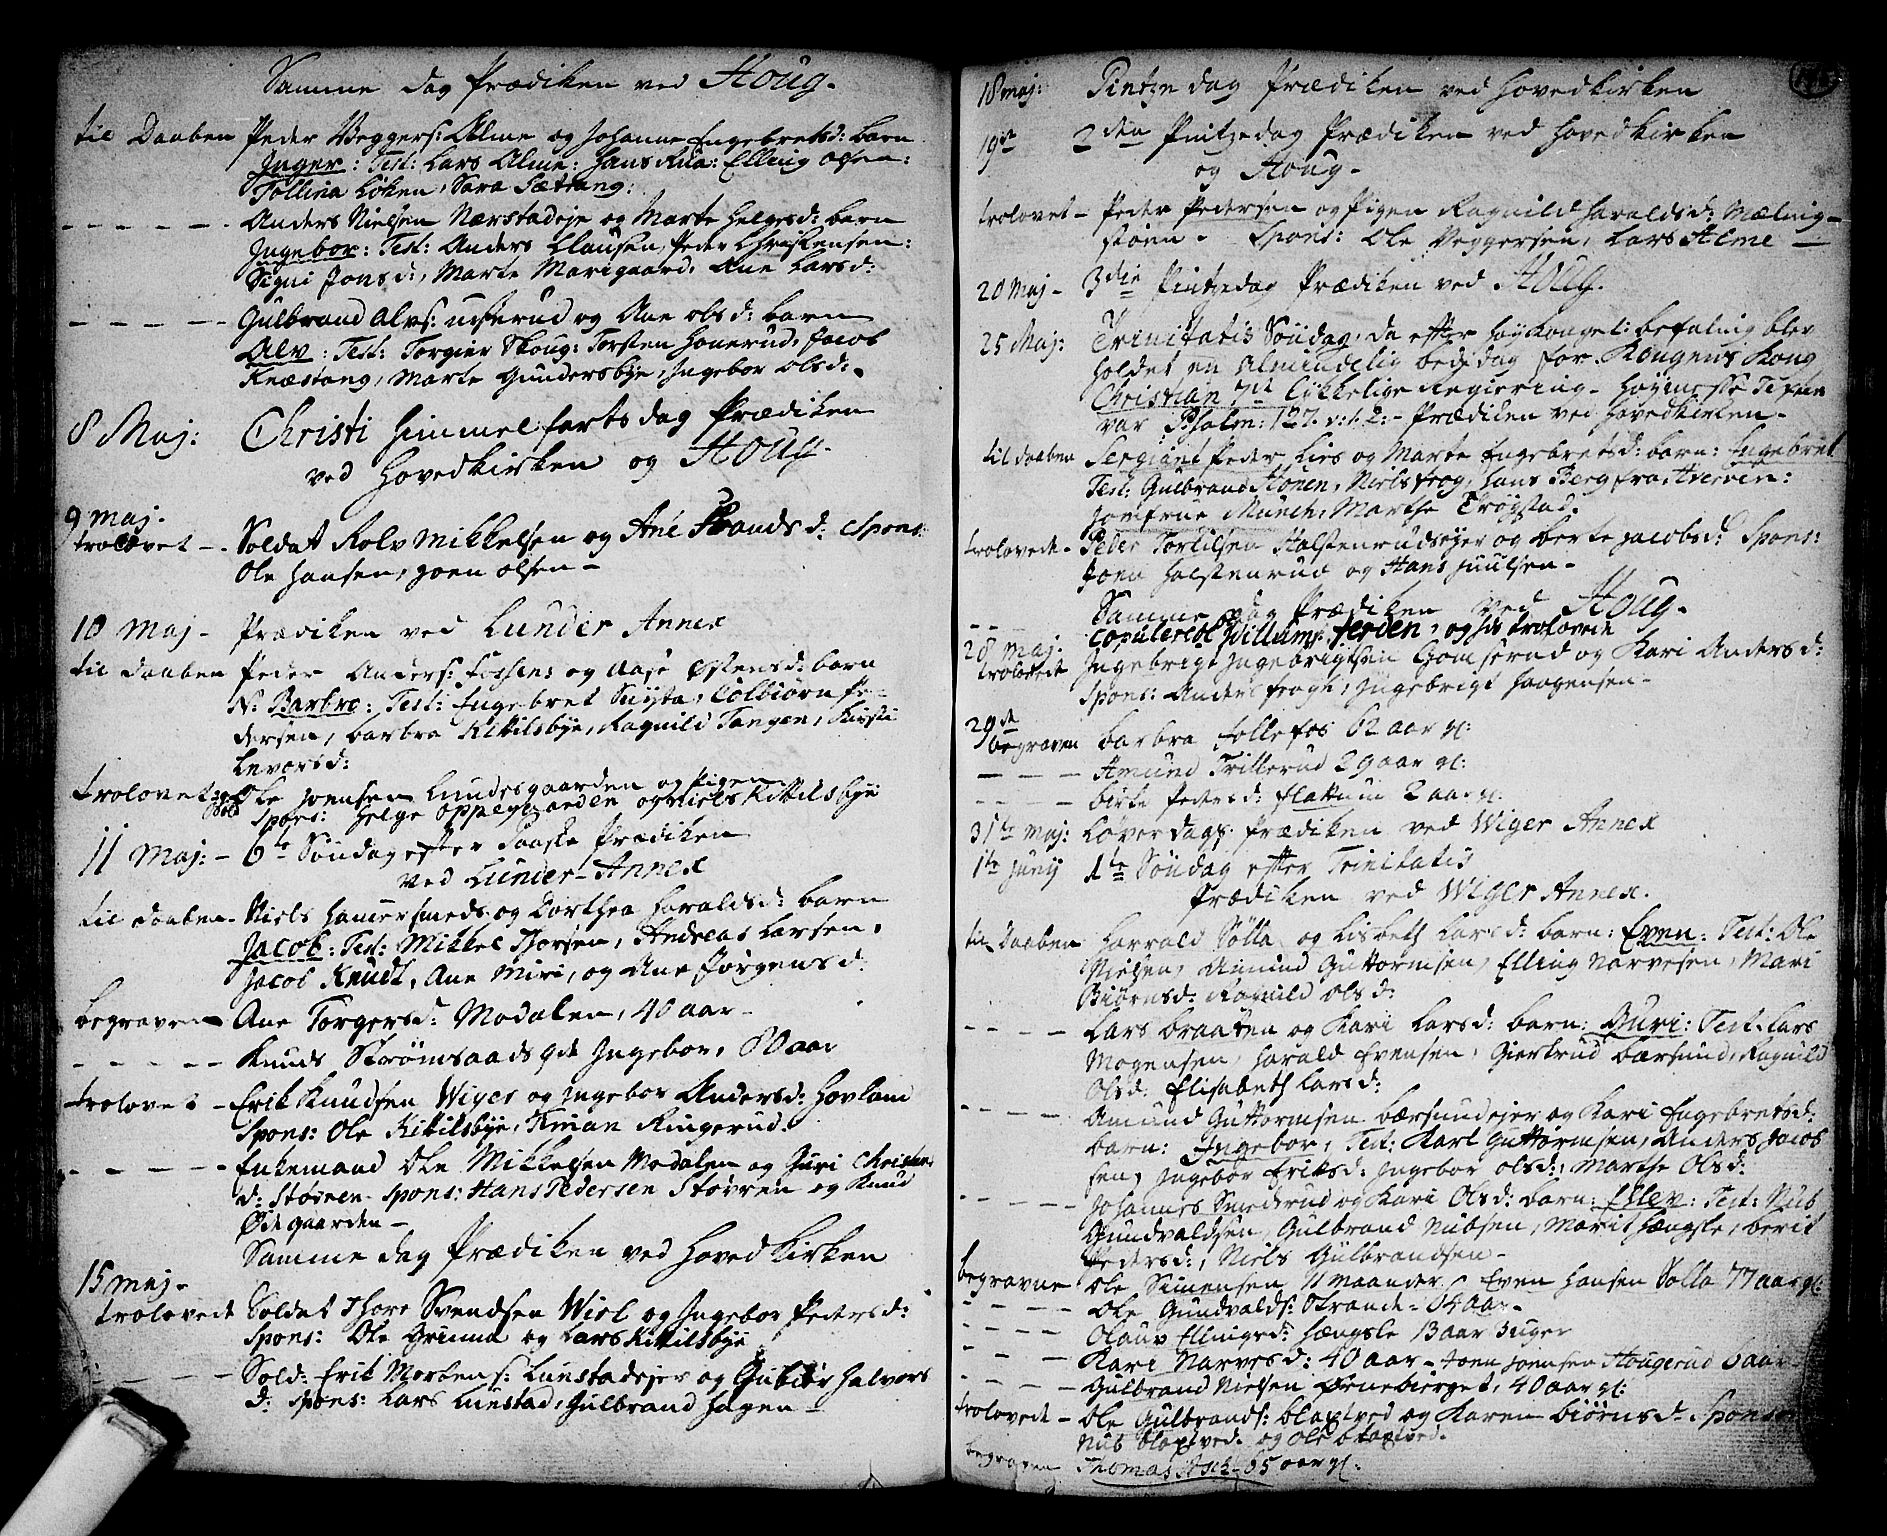 Samme dag Prædiken ved Houg.
til Daaben Peder Veggers: Alme og Johanne Engebretsd: barn
Inger: Test: Lars Alme: Hans Rua: Elling Olsen:
Tollina Løken, Sara Sætrang:
- - - - - Anders Nielsen Nærstadeje og Marte Helgesd: barn
Ingebor: Test: Anders Clausen, Peder Christensen:
Signi Jonsd:, Marte Morigaard, Ane Larsd:
- - - - - Gulbrand Alvs: og Ane olsd: barn
Alv: Test: Torgier Skoug: Torsten Honerud, Jacob
Knæstang, Marte Gundersbye, Ingebor Olsd:
8 Maj: Christi Himmelfarts dag Prædiken
ved Hovedkirken og Houg.
9 maj.
trolovet - Soldat Rolv Mikkelsen og Ane d: Spons:
Ole Hansen, Joen Olsen -
10 Maj - Prædiken ved Lunder Annex
til daaben Peder Anders: og Aase Østensd: barn
N: Barbro: Test: Engebret Snyta, Colbiørn Pe-
dersen, barbra Kittilsbye, Ragnild Tangen, Kirsti
Levorsd:
trolovet: Ole Joensen Lundesgaarden og Pigen
Spons: Helge Oppegaarden og Niels Kittilsbye
11 Maj: - 6te Søndag efter Paaske Prædiken
ved Lunder-Annex
til daaben - Niels Hamersmeds og Dorthea Haraldsd: barn
Jacob: Test: Mikkel Thorsen, Andreas Larsen,
Jacob Knudt, Ane Miri, og Ane Jørgensd:
begraven Ane Torgersd: Modalen, 40 aar -
- - - - - Knuds Strømsaads Ingebor, 80 aar
trolovet - Erik Knudsen Wiger og Ingebor Andersd: Hovland
Spons: Ole Kittilsbye, Ringerud:
- - - - - Enkemand Ole Mikkelsen Modalen og Guri Christens
d: Støvren - Spons: Hans Pedersen Støvren og Knud
Ødegaarden -
Samme dag Prædiken ved Hovedkirken
15 maj -
trolovede Soldat Thore Svendsen Wiel og Ingebor Pedersd:
Spons: Ole Grimna og Lars Kittilsbye
- - - - - Sold: Erik Mortens: Lunstadejer og Halvors
d: Spons: Lars Lunstad, Gulbrand Hagen -
18 maj: Pintze dag Prædiken ved Hovedkirken
19de 2den Pintzedag Prædiken ved Hovedkirken
og Houg -
trolovet - Peder Pedersen og Pigen Ragnild Haraldsd: Mælnig-
støen. Spons: Ole Veggersen, Lars Alme -
20 Maj - 3die Pintzedag Prædiken ved Houg.
25 Maj: Trinitatis Søndag, da efter høykongel: befaling blev
holdet en almindelig bededag for Kongens Kong
Christian 7de Lykkelige Regiering - Høymesse Texten
var Psalm: 127. v: 1. 2: - Prædiken ved Hovedkirken -
til daaben Sergiant Peder Lies og Marte Engebretsd: barn: Engebret
Test: Gulbrand Hønen, Niels Frog, Hans Berg fra Averøen:
Jomfrue Munch, Marthe Trøgstad.
trolovede - Peder Tortilsen Halstenrudsejer og Berte Jacobsd: Spons:
Joen Halstenrud og Hans Juulsen -
- - - Samme dag Prædiken ved Houg -
28 maj: Copulered og sin trolovede
trolovede Ingebrigt Ingebrigtsen Gomserud og Kari Andersd:
Spons: Anders Frogh, Ingebrigt Haagensen -
29de
begraven barbra Follefos 62 aar gl:
- - - Amund Trillerud 29 aar gl:
- - - - birte Pedersd: Flakum 2 aar gl:
31te maj: Løverdags Prædiken ved Wiger Annex
1te Junij 1te Søndag efter Trinitatis
Prædiken ved Wiger Annex.
til Daaben Harrald Sølla og Lisbeth Larsd: barn: Even: Test: Ole
Nielsen, Amund Guttormsen, Elling Narvesen, Mari
Biørnsd: Ragnild Olsd:
- - - - Lars Braaten og Kari Larsd: barn: Guri: Test: Lars
Mogensen, Harald Evensen, Giertrud Bærsund, Ragnild
Olsd: Elisabeth Larsd:
- - - - Amund Guttormsen Bærsundejer og Kari Engebretsd:
barn: Ingebor, Test: Karl Guttormsen, Anders Jacob
sen, Ingebor Eriksd: Ingebor Olsd:, Marthe Olsd:
- - - - Johannes Smederud og Kari Olsd: barn: Ellev: Test: Nub
Gundvaldsen, Gulbrand Nubsen, Marit Hængsle, berit
Pedersd:, Niels Gulbrandsen -
begravne Ole Simensen 11 maaneder, Even Hansen Sølla 77 aar gl:
- - - - Ole Gundvalds: Strande - 84 aar -
- - - - Olauv Ellingsd: Hængsle 13 aar 3 uger
- - - Kari Narvesd: 40 aar - Joen Joensen Hougerud 6 aar
- - - - Gulbrand Nielsen Ørnebierget, 40 aar gl:
trolovede - Ole Gulbrands: Blaxtved og Karen Biørnsd: Spons:
Nub Blaxtved: og Ole Blaxtved.
begraven Thomas Asch - 65 aar gl: